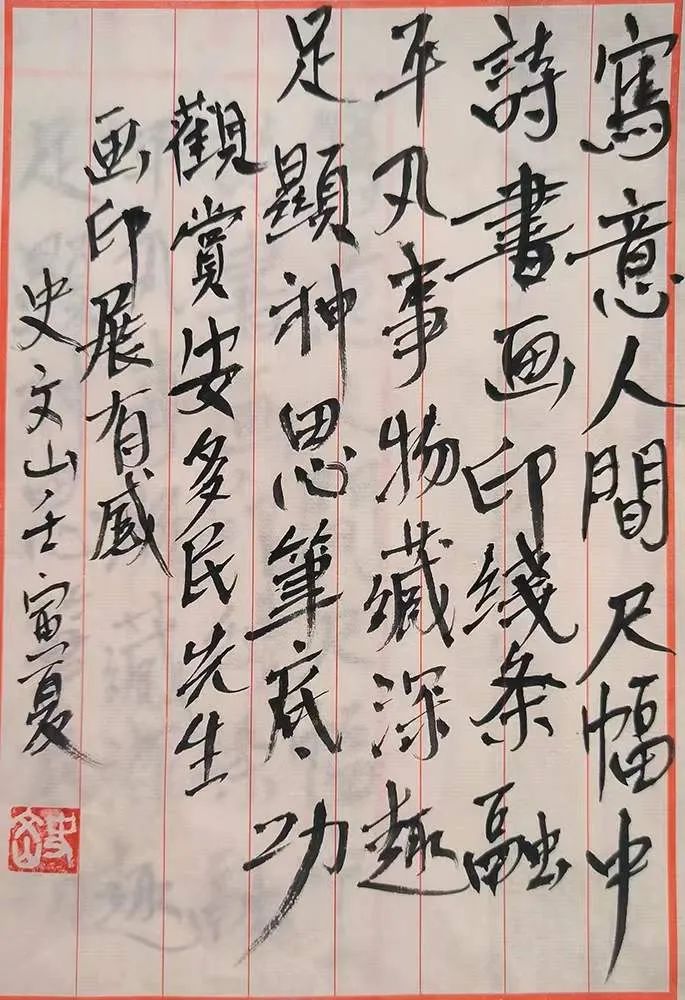 寫意人間尺幅中
詩書画印綫条融
平凡事物藏深趣
足顯神思筆底功
觀賞安多民先生
画印展有感
史文山壬寅夏
史文山